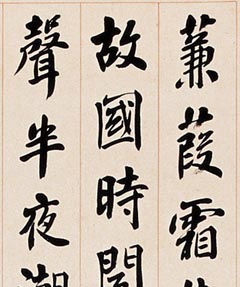 蒹葭霜
故國時聞
聲半夜潮